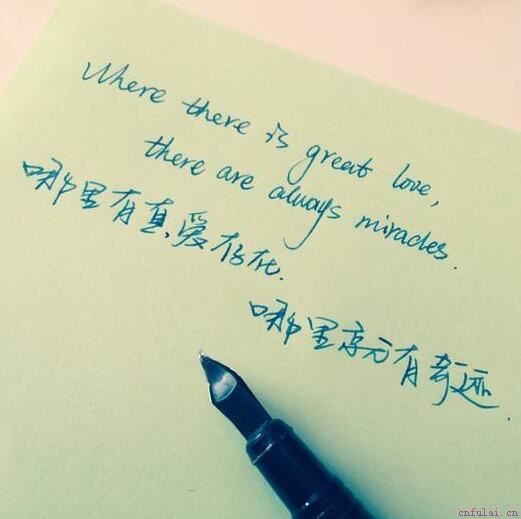 Where there is great love,
there are always miracles.
哪里有真爱存在.
哪里就有奇迹.
cnfulai.cn